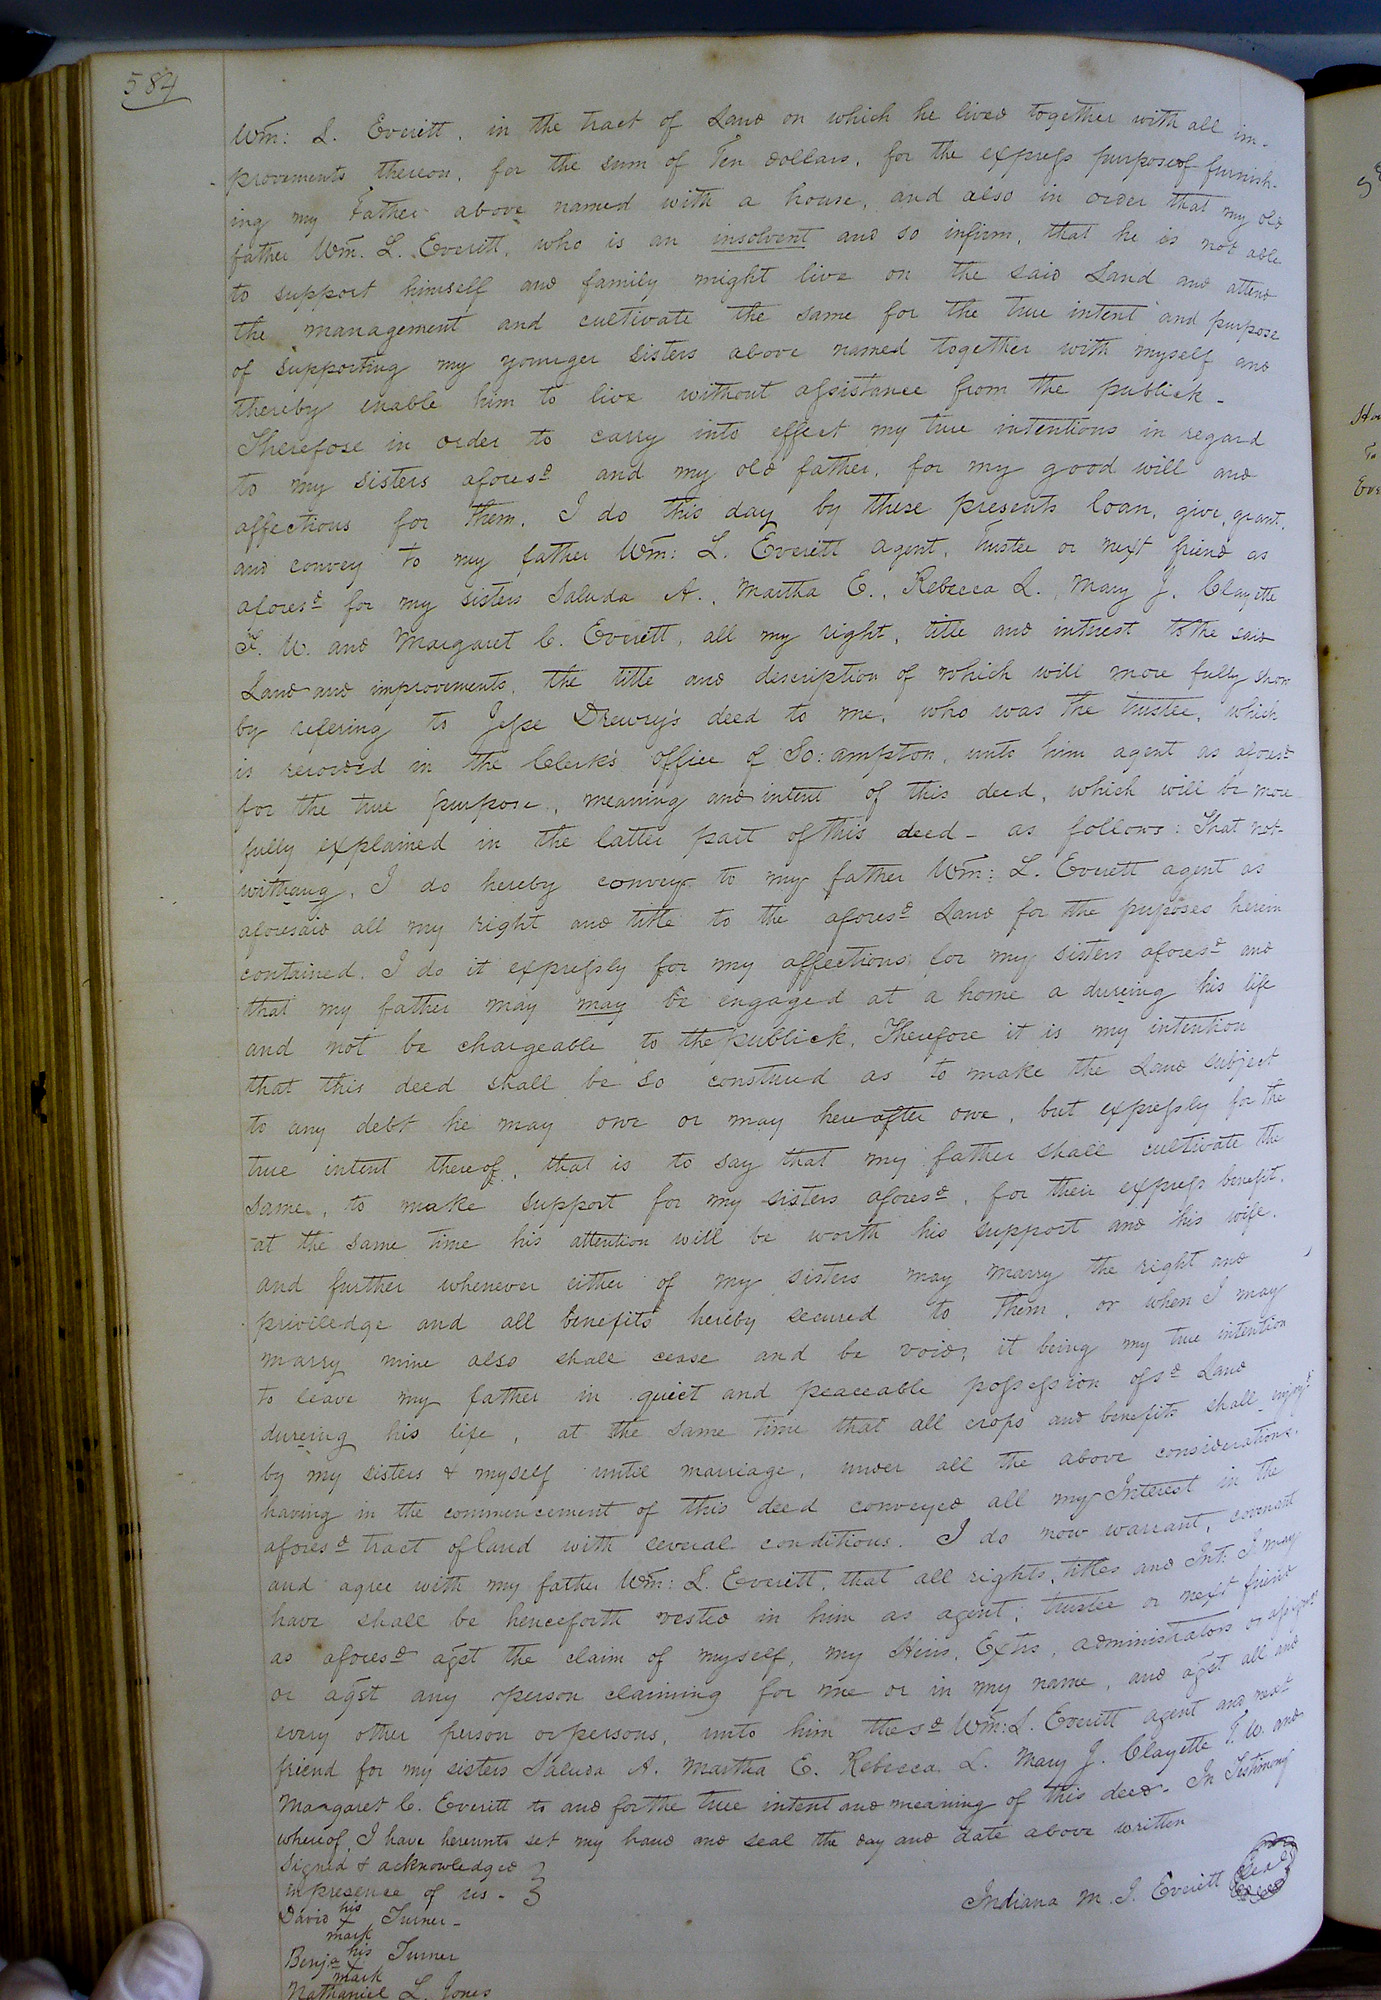 584
Wm: L. Everett, in the tract of Land on which he lived together with all im-
provements thereon, for the sum of Ten dollars, for the express purpose of furnish-
ing my Father above named with a house, and also in order that my old
father Wm. L. Everett, who is an insolvent and so infirm, that he is not able
to support himself and family might live on the said Land and attend
the management and cultivate the same for the true intent and purpose
of supporting my younger sisters above named together with myself and
thereby enable him to live without assistance from the publick -
Therefore in order to carry into effect my true intentions in regard
to my sisters aforesd and my old father, for my good will and
affections for them, I do this day by these presents loan, give, grant,
and convey to my father Wm: L. Everett agent, Trustee or next friend as
aforesd for my sisters Saluda A., Martha E., Rebecca L., Mary J., Clayette
F. W. and Margaret C. Everett, all my right, title and intrest to the said
Land and improvements, the title and description of which will more fully show
by refering to Jesse Drewry's deed to me, who was the trustee, which
is recorded in the Clerk's office of So:ampton, unto him agent as aforesd
for the true purpose, meaning and intent of this deed, which will be more
fully explained in the latter part of this deed - as follows: That not-
withang, I do hereby convey to my father Wm: L. Everett agent as
aforesaid all my right and title to the aforesd Land for the puposes herein
contained. I do it expressly for my affections for my sisters aforesd and
that my father may may be engaged at a home a dureing his life
and not be chargeable to the publick, Therefore it is my intention
that this deed shall be so construed as to make the Land subject
to any debt he may owe or may hereafter owe, but expressly for the
true intent thereof, that is to say that my father shall cultivate the
same, to make support for my sisters aforesd, for their express benefit,
at the same time his attention will be worth his support and his wife.
and further whenever either of my sisters may marry the right and
priviledge and all benefits hereby secured to them, or when I may
marry mine also shall cease and be void; it being my true intention
to leave my father in quiet and peaceable possession of sd Land
dureing his life, at the same time that all crops and benefits shall enjoyd
by my sisters & myself until marriage, under all the above considerations.
having in the commencement of this deed conveyed all my Interest in the
aforesd tract of land with several conditions. I do now warrant, covenant
and agree with my father Wm: L. Everett, that all rights, titles and Int: I may
have shall be henceforth vested in him as agent, trustee or next friend
as aforesd agst the claim of myself, my Heirs, Extrs, administrators or assigns
or agst any person claiming for me or in my name, and agst all and
every other person or persons, unto him the sd Wm: L. Everett agent and next
friend for my sisters Saluda A. Martha E. Rebecca L. Mary J. Clayette F. W. and
Margaret C. Everett to and for the true intent and meaning of this deed - In Testimony
whereof I have hereunto set my hand and seal the day and date above written
Signed & acknowledged
in presence of us -
Indiana M. J. Everett Seal
his
David X Turner -
mark
his
Benja X Turner
mark
Nathaniel L. Jones